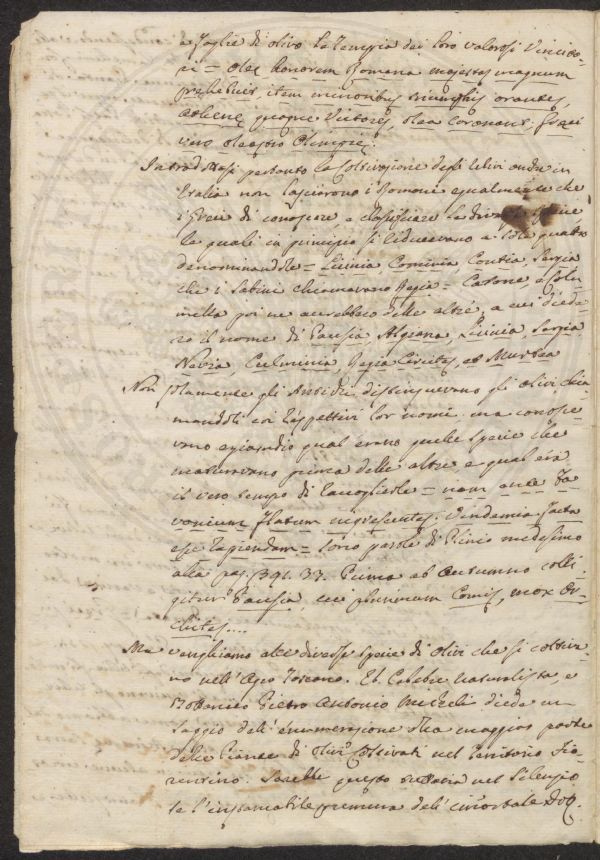 e foglie di olivo le Tempia dei loro valorosi Vincito-
ri = oleę honorem Romana majestas magnum
prębebit, item minoribus triumphis orantes,
Athenę quoque Victores, olea coronant, Gręci
vero oleastro Olimpię.
Introdottasi pertanto la Coltivazione degli Ulivi anche in
Italia non lasciorono i Romani egualmente che
i Greci di conoscere, e classificare le diverse specie
le quali in principio si riducevano a sole quattro
denominandole = Licinia Cominia, Contia, Sergia
che i Sabini chiamavano Regia = Catone, e Colu-
mella poi ne accrebbero delle altre, a cui diede-
ro il nome di Pausia, Algiana, Licinia, Sergia
Nevia, Culminia, Regia Circites, et Murtea
Non solamente gli Antichi distinguevano gli olivi chia-
mandoli coi rispettivi lor nomi ma conosce-
vano eziandio qual erano quelle specie che
maturavano prima delle altre e qual era
il vero tempo di raccoglierle = nam ante Fa-
vonium flatum nigrescentes. Vendemia facta
esse rapiendam = sono parole di Plinio medesimo
alla pag. 391. 37. Primo ab Autumno colli-
gitur Pausia, cui plurimum Comis, mox Or-
chites....
Ma venghiamo alle diverse specie di olivi che si coltiva-
no nell' Agro Toscano. Il Celebre naturalista, e
Bottanico Pietro Antonio Micheli diede un
saggio dell' enumerazione della maggior parte
delle Piante di olivi Coltivati nel Territorio Fio-
rentino. Sarebbe questo tuttavia nel Silenzio
se l'instancabile premura dell' immortale Dot.